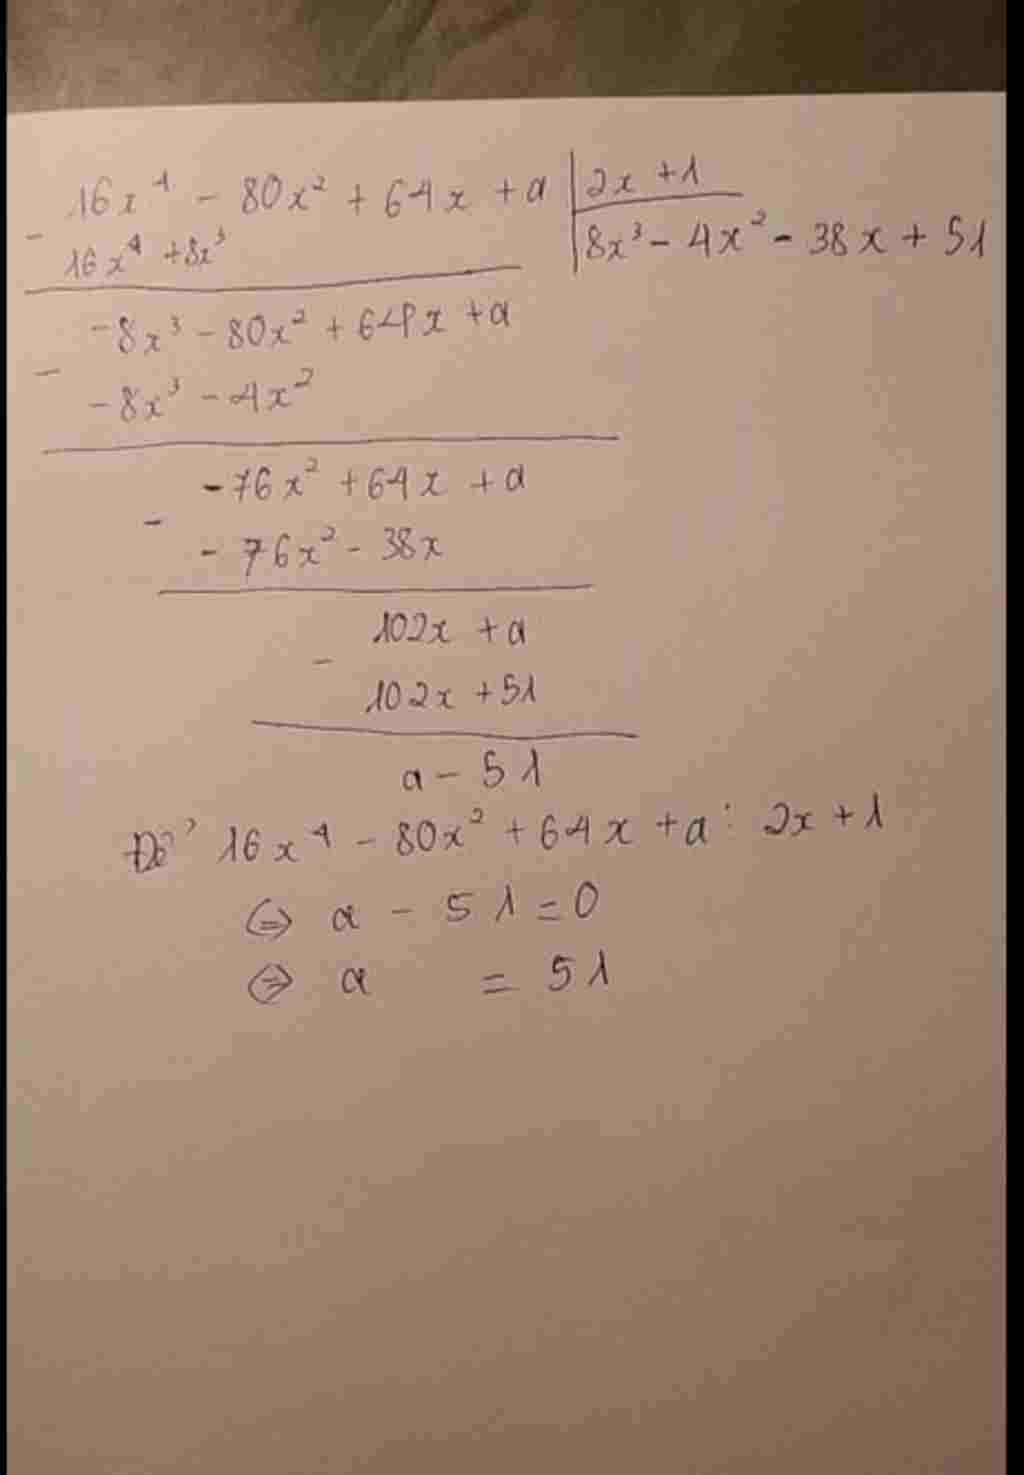 16x⁴ - 80x² + 64x + a | 2x + 1
- 16x⁴ + 8x³ | 8x³ - 4x² - 38x + 51
-8x³ - 80x² + 64x + a
- -8x³ - 4x²
-76x² + 64x + a
- -76x² - 38x
102x + a
- 102x + 51
a - 51
Để 16x⁴ - 80x² + 64x + a : 2x + 1
⇔ a - 51 = 0
⇔ a = 51